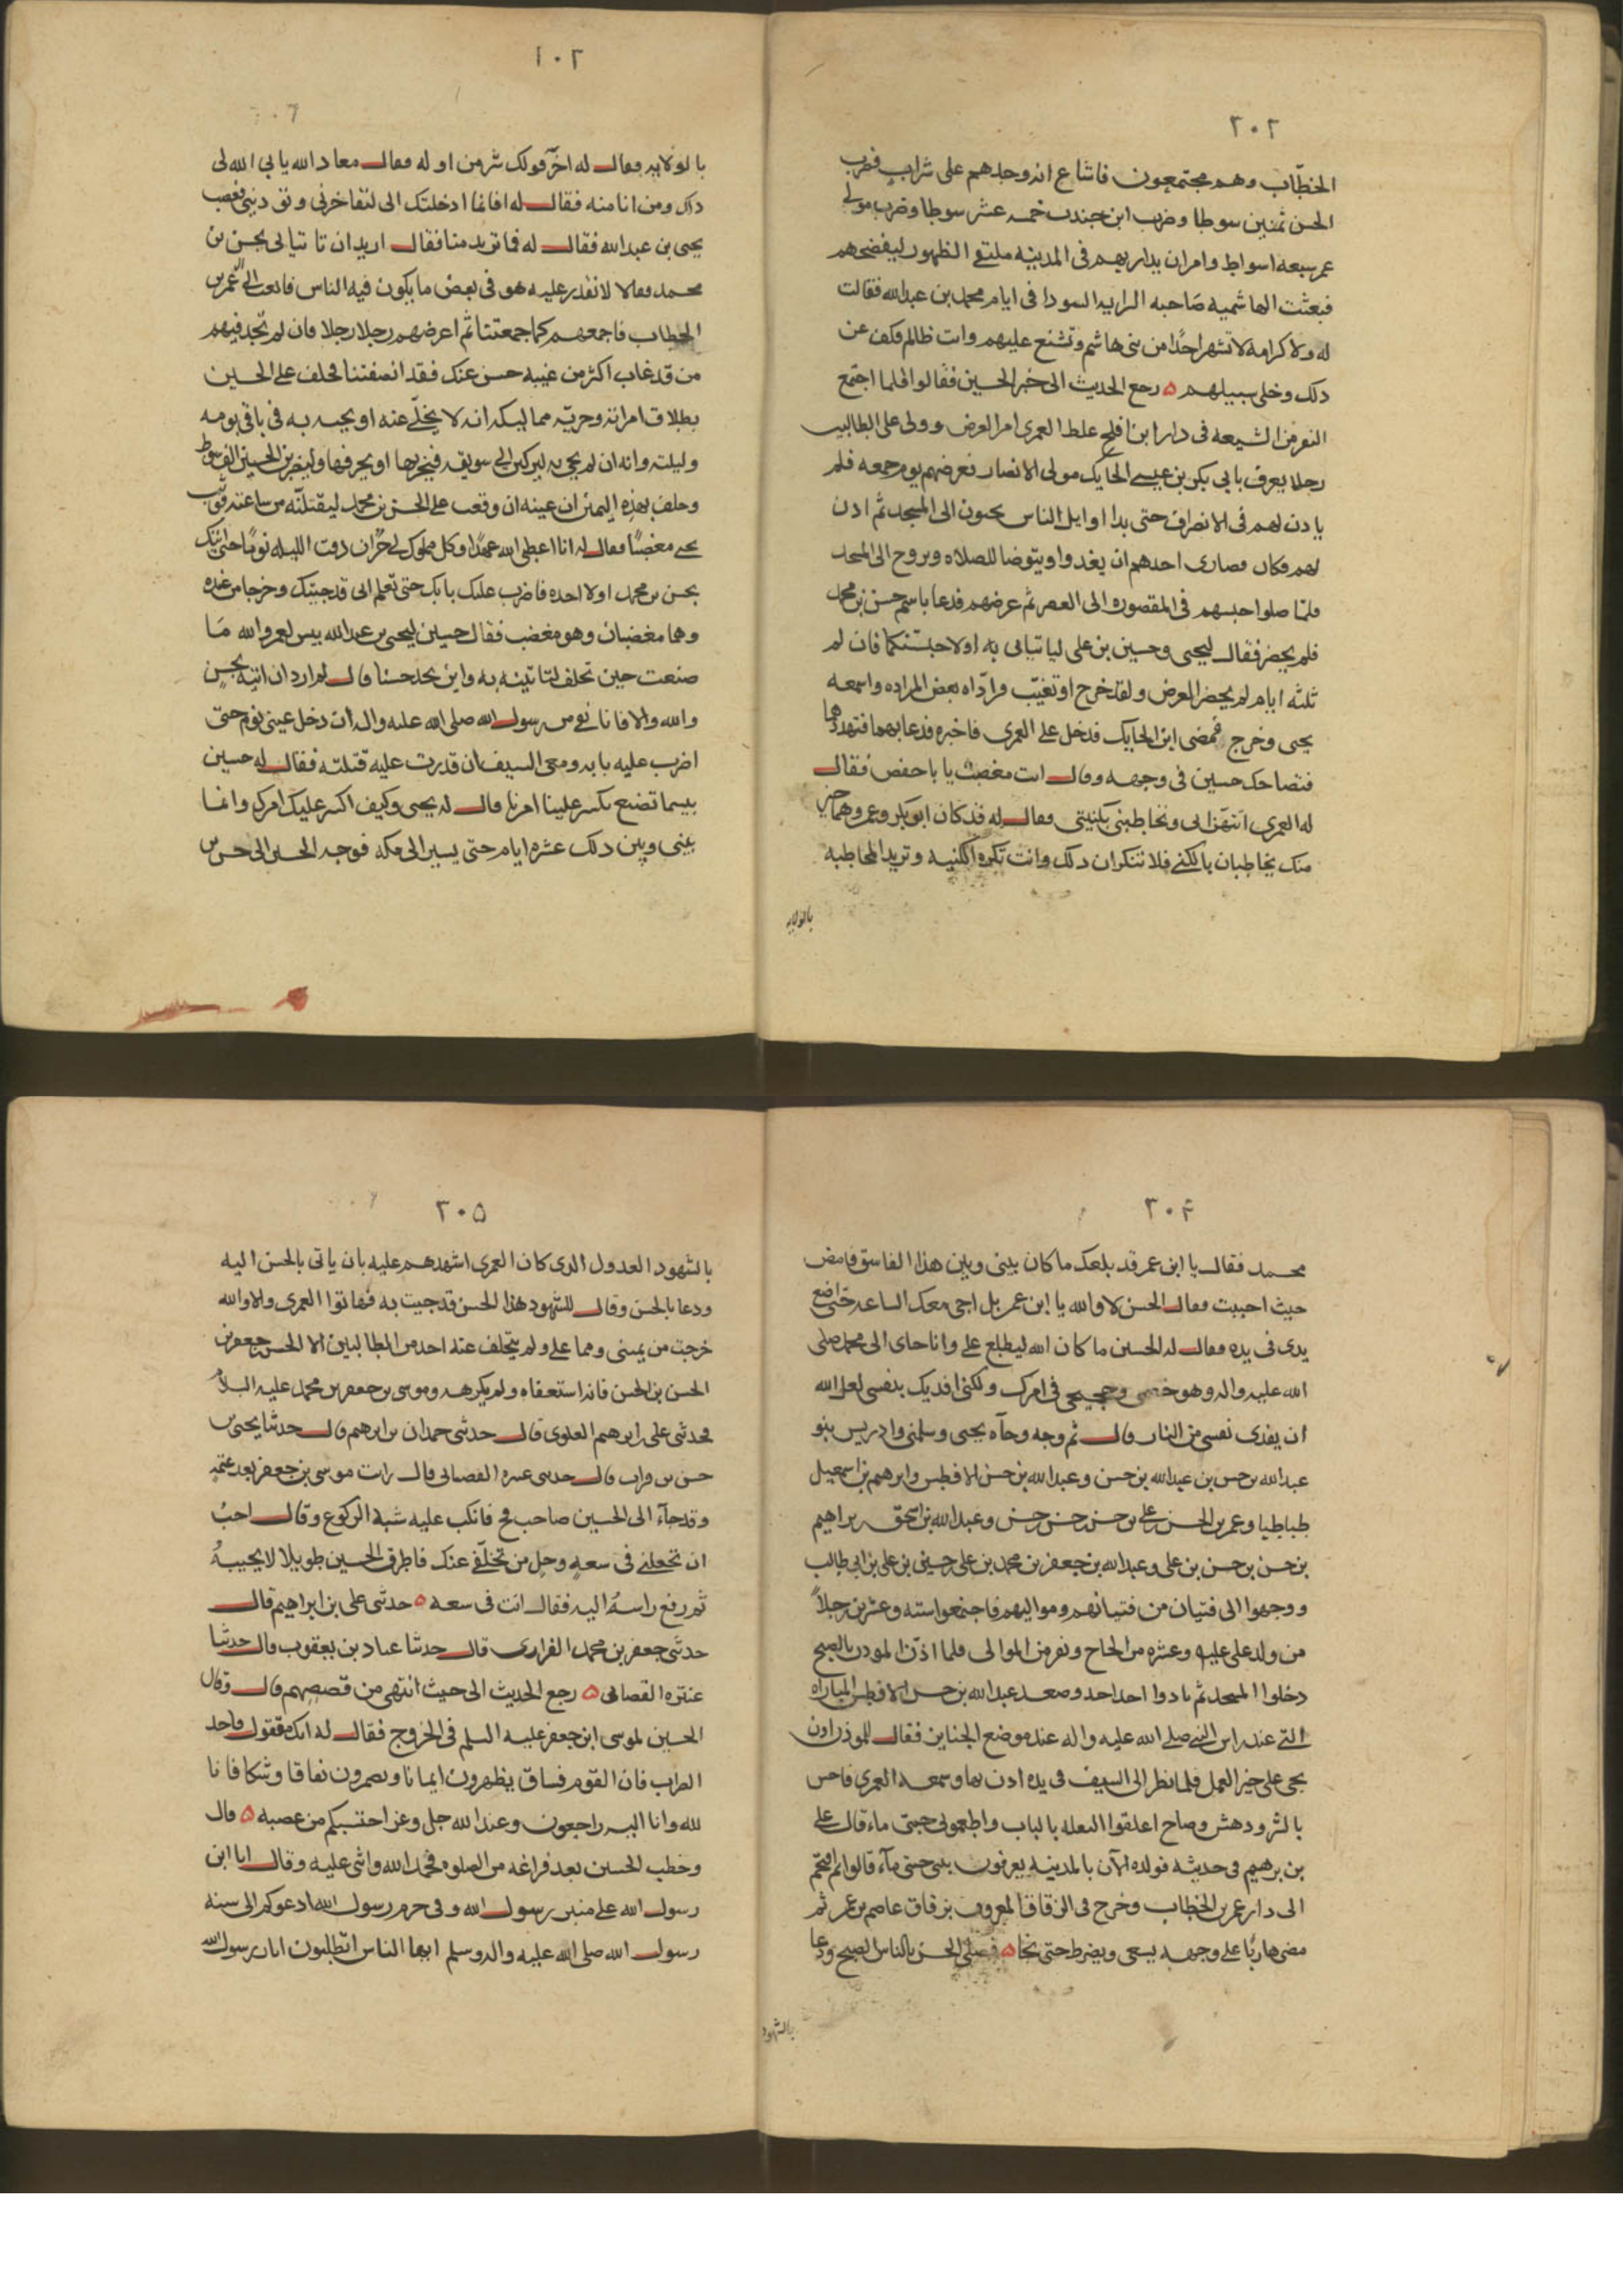 ٢٠٢
الخطّاب وهم مجتمعون فاشاع انه وجدهم على شراب فضرب
الحسن ثمنين سوطا وضرب ابن جندب خمسه عشر سوطا وضرب مولى
عمر سبعه اسواط وامر ان يدار بهم فى المدينه الظهور ليفضحهم
فبعثت الهاشميه صاحبه الرايه السودا فى ايام محمد بن عبدالله فقالت
له ولا كرامه لا تشهر احدًا من بنى هاشم وتشنع عليهم وانت ظالم فكف عن
دلك وخلى سبيلهم ه رجع الحديث الى خبر الحسين فقالوا فلما اجتمع
النفر من الشيعه فى دار ابن افلح غلط العمرى امر العرض وولى على الطالبين
رجلا يعرف بابى بكر بن عيسى الحايك مولى الانصار فعرضهم يوم جمعه فلم
يادن لهم فى الانصراف حتى بدا اوايل الناس يجئون الى المسجد ثم ادن
لهم فكان قصارى احدهم ان يغدوا ويتوضا للصلاه ويروح الى المسجد
فلمّا صلوا حبسهم فى المقصوره الى العصر ثم عرضهم فدعا باسم حسن بن محمد
فلم يحضر فقال ليحيى وحسين بن على لياتيانى به او لاحبسنكما فان له
ثلثه ايام لم يحضر العرض ولقد خرج او تغيّب فرآدّاه بعض المراده واسمعه
يحيى وخرج فمضى ابن الحايك فدخل على العمرى فاخبره فدعا بهما فتهددهما
فتضاحك حسين فى وجهه وقال انت مغضب يا باحفص فقال
له العمرى اتتهزا بى وتخاطبنى بكنيتى فقال له قد كان ابو بكر وعمر وهما خير
منك يخاطبان بالكنى فلا تنكران دلك وانت تكره الكنيه وتريد المخاطبه
بالولايه
١٠٢
بالولايه فقال له اخر قولك شر من اوله فقال معاد الله يابى الله لى
دلك ومن انا منه فقال له افانما ادخلتك الى لتفاخرنى وتودينى فغضب
يحيى بن عبدالله فقال له فما تريد منا فقال اريد ان تاتيانى بحسن بن
محمد فقالا لا نقدر عليه هو فى بعض ما يكون فيه الناس فابعث الى آل عمر بن
الخطاب فاجمعهم كما جمعتنا ثم اعرضهم رجلا رجلا فان لم تجد فيهم
من قد غاب اكثر من غيبه حسن عنك فقد انصفتنا فحلف على الحسين
بطلاق امراته وحريّه مماليكه انه لا يخلّى عنه او يجيه به فى باقى يومه
وليلته وانه ان لم يجى به ليركبن الى سويقه فيخربها او يحرقها وليضربن الحسين الف سوط
وحلف بهذه اليمين ان عينه ان وقعت على الحسن بن محمد ليقتلنّه من ساعته فوثب
يحيى مغضبًا فقال له انا اعطى الله عهدًا وكل مملوك لى حرّ ان دقت الليله نومًا حتى اتيك
بحسن بن محمد او لا اجده فاضرب عليك بابك حتى تعلم انى قد جيتك وخرجا من عنده
وهما مغضبان وهو مغضب فقال حسين ليحيى بن عبدالله بيس لعمر والله ما
صنعت حين تحلف لتاتينه به واين تجد حسنا قال لم ارد ان اتيه بحسن
والله والا فانا نفى من رسول الله صلى الله عليه واله ان دخل عينى نوم حتى
اضرب عليه بابه ومعى السيف ان قدرت عليه قتلته فقال له حسين
بيسما تصنع تكسر علينا امرنا قال له يحيى وكيف اكسر عليك امرك وانما
بينى وبين دلك عشره ايام حتى يسير الى مكه فوجه الحسين الى حسن بن
٢٠٤
محمد فقال يا ابن عمر قد بلغك ما كان بينى وبين هذا الفاسق فامض
حيث احببت فقال الحسن لا والله يا ابن عمر بل اجى معك الساعه حتى اضع
يدى فى يده فقال له الحسين ما كان الله ليطلع على وانا جاى الى محمد صلى
الله عليه واله وهو خصمى وحجيجى فى امرك ولكنى افديك بنفسى لعل الله
ان يفدى نفسى من النار قال ثم وجه وجآه يحيى وسلمن وادريس بنو
عبدالله بن حسن بن عبدالله بن حسن وعبدالله بن حسن الافطس وابرهيم بن اسمعيل
طباطبا وعمر بن الحسن بن على بن حسن بن حسن بن حسن وعبدالله بن اسحق بن براهيم
بن حسن بن حسن بن على وعبدالله بن جعفر بن محمد بن على بن حسين بن على بن ابى طالب
ووجهوا الى فتيان من فتيانهم ومواليهم فاجتمعوا سته وعشرين رجلاً
من ولد على عليه وعشره من الحاج ونفر من الموالى فلما اذن المودن بالصبح
دخلوا المسجد ثم نادوا احد احد وصعد عبدالله بن حسن الافطس المناره
التى عند راس النبى صلى الله عليه واله عند موضع الجناين فقال للموذن اذن
بحى على خير العمل فلما نظر الى السيف فى يده ادن بها وسمعه العمرى فاحس
بالشر ودهش وصاح اغلقوا البغله بالباب واطعمونى حبتى ماء قال على
بن برهيم فى حديثه فولده الآن بالمدينه يعرفون ببنى حبتى مآء قالوا ثم اقتحم
الى دار عمر بن الخطاب وخرج فى الزقاق المعروف بزقاق عاصم بن عمر ثم
مضى هاربًا على وجهه يسعى ويضرط حتى نجا ه فصلى الحسن بالناس الصبح ودعا
بالشهود
٢٠٥
بالشهود العدول الدى كان العمرى اشهدهم عليه بان ياتى بالحسن اليه
ودعا بالحسن وقال للشهود هذا الحسن قد جيت به فهاتوا العمرى والا والله
خرجت من يمينى ومما على ولم يتخلف عنه احد من الطالبين الا الحسن بن جعفر بن
الحسن بن الحسن فانه استعفاه ولم يكرهه وموسى بن جعفر بن محمد عليه السلام
فحدثنى على بن ابرهيم العلوى قال حدثنى حمدان بن ابرهيم قال حدثنا يحيى بن
حسن بن فرات قال حدثنى عنتره القصبانى قال رايت موسى بن جعفر بعد عتمه
وقد جآء الى الحسين صاحب فخ فانكب عليه شبه الركوع وقال احبُ
ان تجعلنى فى سعه وحل من تخلّفى عنك فاطرق الحسين طويلا لا يجيبهُ
ثم رفع راسهُ اليه فقال انت فى سعه ه حدثنى على بن ابراهيم قال
حدثنى جعفر بن محمد الفزارى قال حدثنا عباد بن يعقوب قال حدثنا
عنتره القصبانى ه رجع الحديث الى حيث انتهى من قصصهم قال وقال
الحسين لموسى ابن جعفر عليه السلم فى الخروج فقال له انك مقتول فاجد
الضراب فان القوم فساق يظهرون ايمانا ويضمرون نفاقا وشكا فانا
لله وانا اليه راجعون وعند الله جل وعز احتسبكم من عصبه ه قال
وخطب الحسين بعد فراغه من الصلوه فحمد الله واثنى عليه وقال انا ابن
رسول الله على منبر رسول الله وفى حرم رسول الله ادعوكم الى سنه
رسول الله صلى الله عليه واله وسلم ايها الناس اتطلبون اثار رسول الله